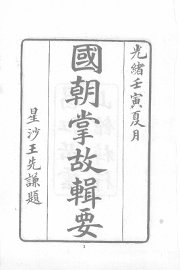 光緒壬寅夏月
國朝掌故輯要
星沙王先謙題